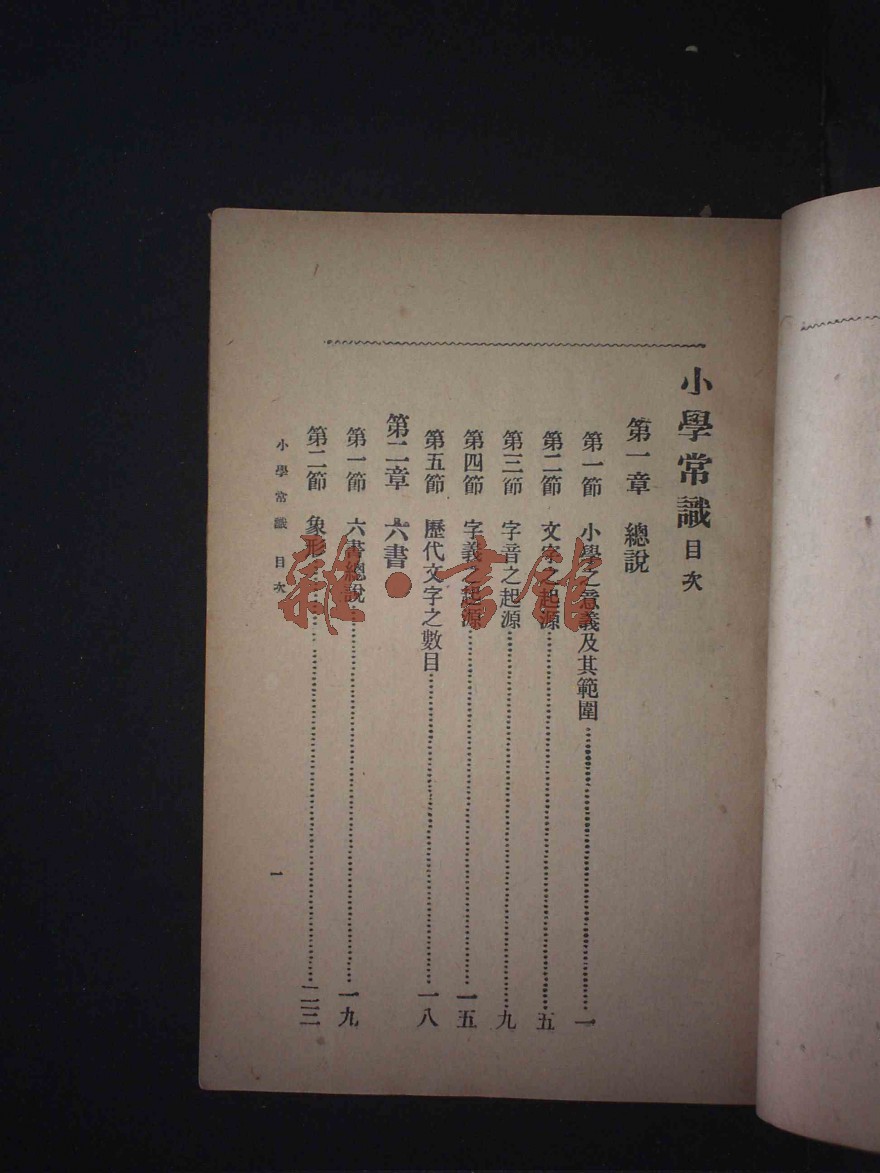 小學常識目次
第一章 總說
第一節 小學之意義及其範圍……一
第二節 文字之起源……五
第三節 字音之起源……九
第四節 字義之起源……一五
第五節 歷代文字之數目……一八
第二章 六書
第一節 六書總說……一九
第二節 象形……二三
小學常識 目次
一
雜·書館